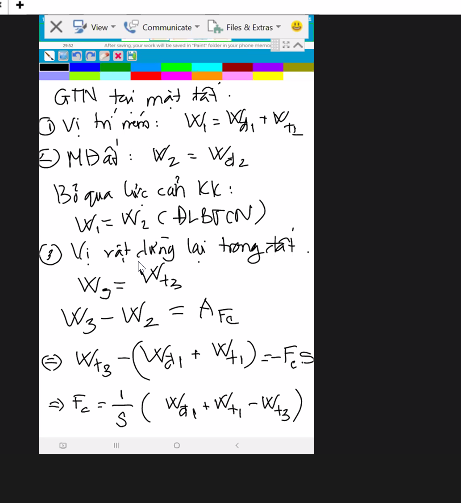 View Communicate Files & Extras
After saving, your work will be saved in "Paint" folder in your phone memory
GTN tại mặt đất.
① Vị trí ném: W₁ = Wđ₁ + Wt₂
② MĐất: W₂ = Wđ₂
Bỏ qua lực cản KK:
W₁ = W₂ (ĐLBTCN)
③ Vị vật dừng lại trong đất.
W₃ = Wt₃
W₃ - W₂ = A Fc
⇔ Wt₃ - (Wđ₁ + Wt₁) = -Fc S
⇒ Fc = 1/S (Wđ₁ + Wt₁ - Wt₃)